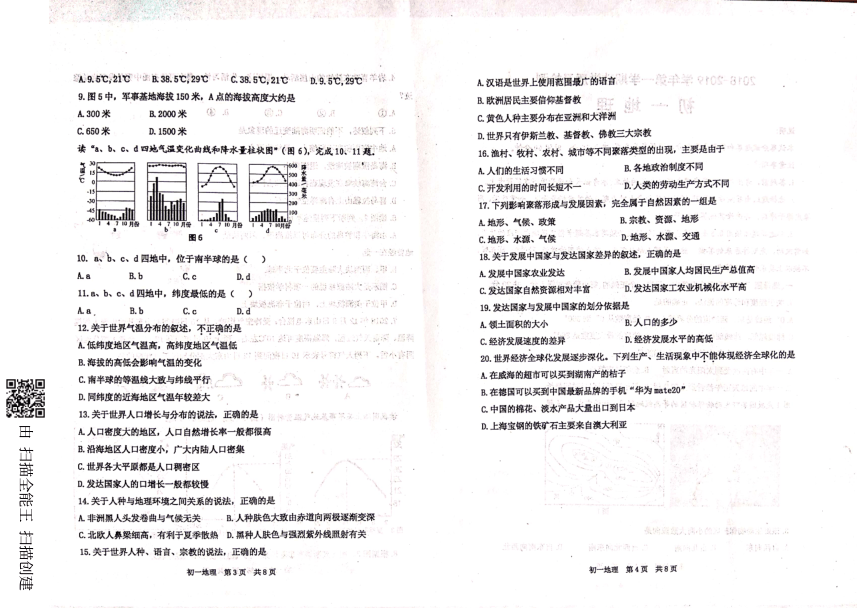 A.9.5℃,21℃ B.38.5℃,29℃ C.38.5℃,21℃ D.9.5℃,29℃
9.图5中，军事基地海拔150米，A点的海拔高度大约是
A.300米 B.2000米
C.650米 D.1500米
读“a、b、c、d四地气温变化曲线和降水量柱状图”(图6)，完成10、11题。
气温/℃
30
15
0
-15
-30
-45
-60
600
500
400
300
200
100
0
降水量/毫米
1 4 7 10月份
a
1 4 7 10月份
b
1 4 7 10月份
c
1 4 7 10月份
d
图6
10. a、b、c、d四地中，位于南半球的是（ ）
A.a B.b C.c D.d
11.a、b、c、d四地中，纬度最低的是（ ）
A.a B.b C.c D.d
12.关于世界气温分布的叙述，不正确的是
A.低纬度地区气温高，高纬度地区气温低
B.海拔的高低会影响气温的变化
C.南半球的等温线大致与纬线平行
D.同纬度的近海地区气温年较差大
13.关于世界人口增长与分布的说法，正确的是
A.人口密度大的地区，人口自然增长率一般都很高
B.沿海地区人口密度小，广大内陆人口密集
C.世界各大平原都是人口稠密区
D.发达国家人的口增长一般都较慢
14.关于人种与地理环境之间关系的说法，正确的是
A.非洲黑人头发卷曲与气候无关 B.人种肤色大致由赤道向两极逐渐变深
C.北欧人鼻梁细高，有利于夏季散热 D.黑种人肤色与强烈紫外线照射有关
15.关于世界人种、语言、宗教的说法，正确的是
初一地理 第3页 共8页
A.汉语是世界上使用范围最广的语言
B.欧洲居民主要信仰基督教
C.黄色人种主要分布在亚洲和大洋洲
D.世界只有伊斯兰教、基督教、佛教三大宗教
16.渔村、牧村、农村、城市等不同聚落类型的出现，主要是由于
A.人们的生活习惯不同 B.各地政治制度不同
C.开发利用的时间长短不一 D.人类的劳动生产方式不同
17.下列影响聚落形成与发展因素，完全属于自然因素的一组是
A.地形、气候、政策 B.宗教、资源、地形
C.地形、水源、气候 D.地形、水源、交通
18.关于发展中国家与发达国家差异的叙述，正确的是
A.发展中国家农业发达 B.发展中国家人均国民生产总值高
C.发达国家自然资源相对丰富 D.发达国家工农业机械化水平高
19.发达国家与发展中国家的划分依据是
A.领土面积的大小 B.人口的多少
C.经济发展速度的差异 D.经济发展水平的高低
20.世界经济全球化发展逐步深化。下列生产、生活现象中不能体现经济全球化的是
A.在威海的超市可以买到湖南产的桔子
B.在德国可以买到中国最新品牌的手机“华为mate20”
C.中国的棉花、淡水产品大量出口到日本
D.上海宝钢的铁矿石主要来自澳大利亚
初一地理 第4页 共8页
由 扫描全能王 扫描创建